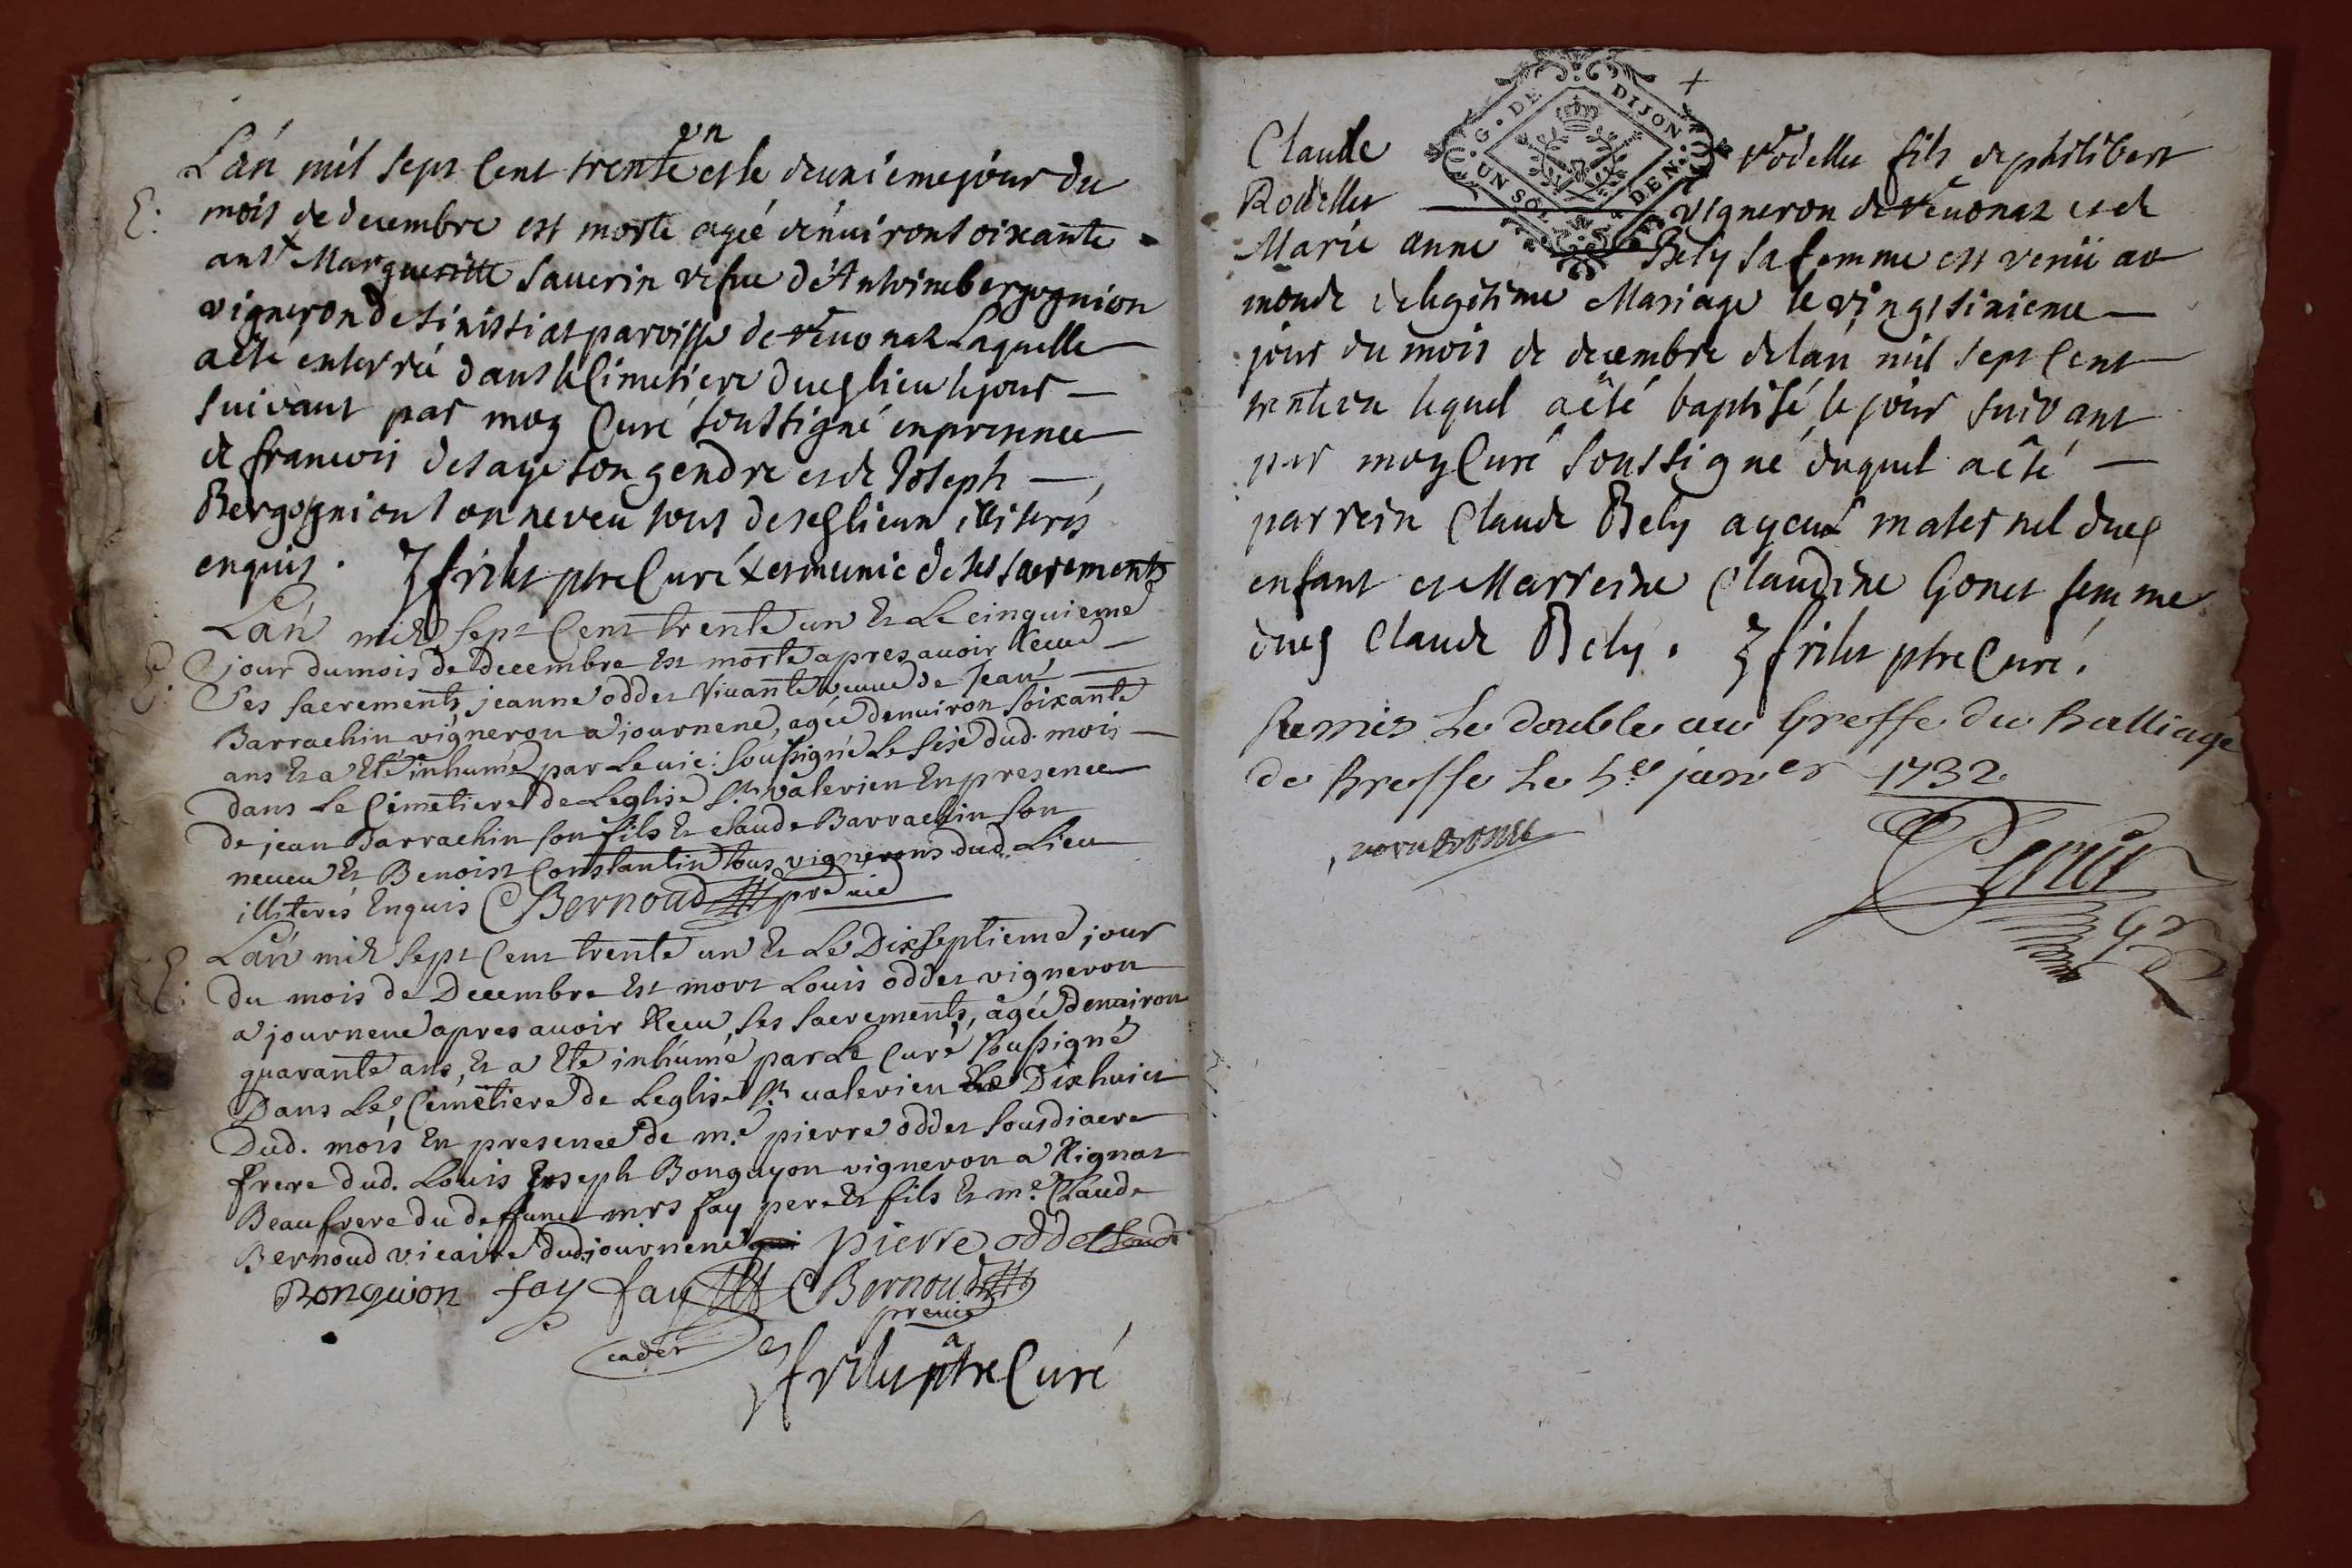 Lán mil sept Cent trente un et le deuxieme jour du
E: mois de decembre est morte ageé dénuiront soixante
ans + Margueritte Sauerin vefue dé Antoine bergognion
vigneron de sinissiat paroisse de reuonaz Laquelle
aété enterreé dans le Cimetiere dueglieu le jour
suivant par moy Curé soussigné enpresence
de francois desaye son gendre et de Joseph
Bergognion son neveu tous deseglieux illiterés
enquis. J frilet ptre Curé + et munie de ses sacrements
Lán mil sept Cent trente un Et Le cinquieme
E: jour du mois de Decembre Est morte apres auoir Receu
Ses sacrements jeanne oddet Viuante veuue de Jean
Barrachin vigneron a journene, agée denuiron soixante
ans Et a Eté inhumé par Le vic: soussigné Le sise dud. mois
dans Le Cimetiere de Leglise St. valerien En presence
de jean Barrachin son fils Et claude Barrachin son
neueu Et Benoist Constantin tous vignerons dud. Lieu
illiterés Enquis C Bernoud pre vic
E: Lán mil sept Cent trente un Et Le Dixseptieme jour
du mois de Decembre Est mort Louis oddet vigneron
a journene apres auoir Receu ses sacrements, agée denuiron
quarante ans, Et a Eté inhumé par Le Curé soussigné
Dans Le Cimetiere de Leglise St. valerien Le Dixhuict
Dud. mois En presence de me. pierre oddet sousdiacre
frere dud. Louis Joseph Bonguyon vigneron a Rignat
Beaufrere du deffunct mrs fay pere Et fils Et me. Claude
Bernoud vicaire dud. journene pierre oddet soud
Bonguion fay fay C Bernoud
pre vic
cadet et
J frilet ptre Curé
UN SOL 4 DEN. G. DE DIJON
Claude Rodellet fils de philibert
Rodellet vigneron de reuonaz et de
Marie anne Bely sa femme est venü au
monde delegitime Mariage le vingtsixieme
jour du mois de decembre de lan mil sept Cent
trente un lequel aêté baptisé le jour suivant
par moy Curé soussigné duquel aêté
parrein Claude Bely ayeux maternel dueg
enfant et Marreine Claudine Gonet femme
dueg Claude Bely. J frilet ptre Curé.
Remis Le double au Greffe du Balliage
de Bresse Le 5e janver 1732
Perier